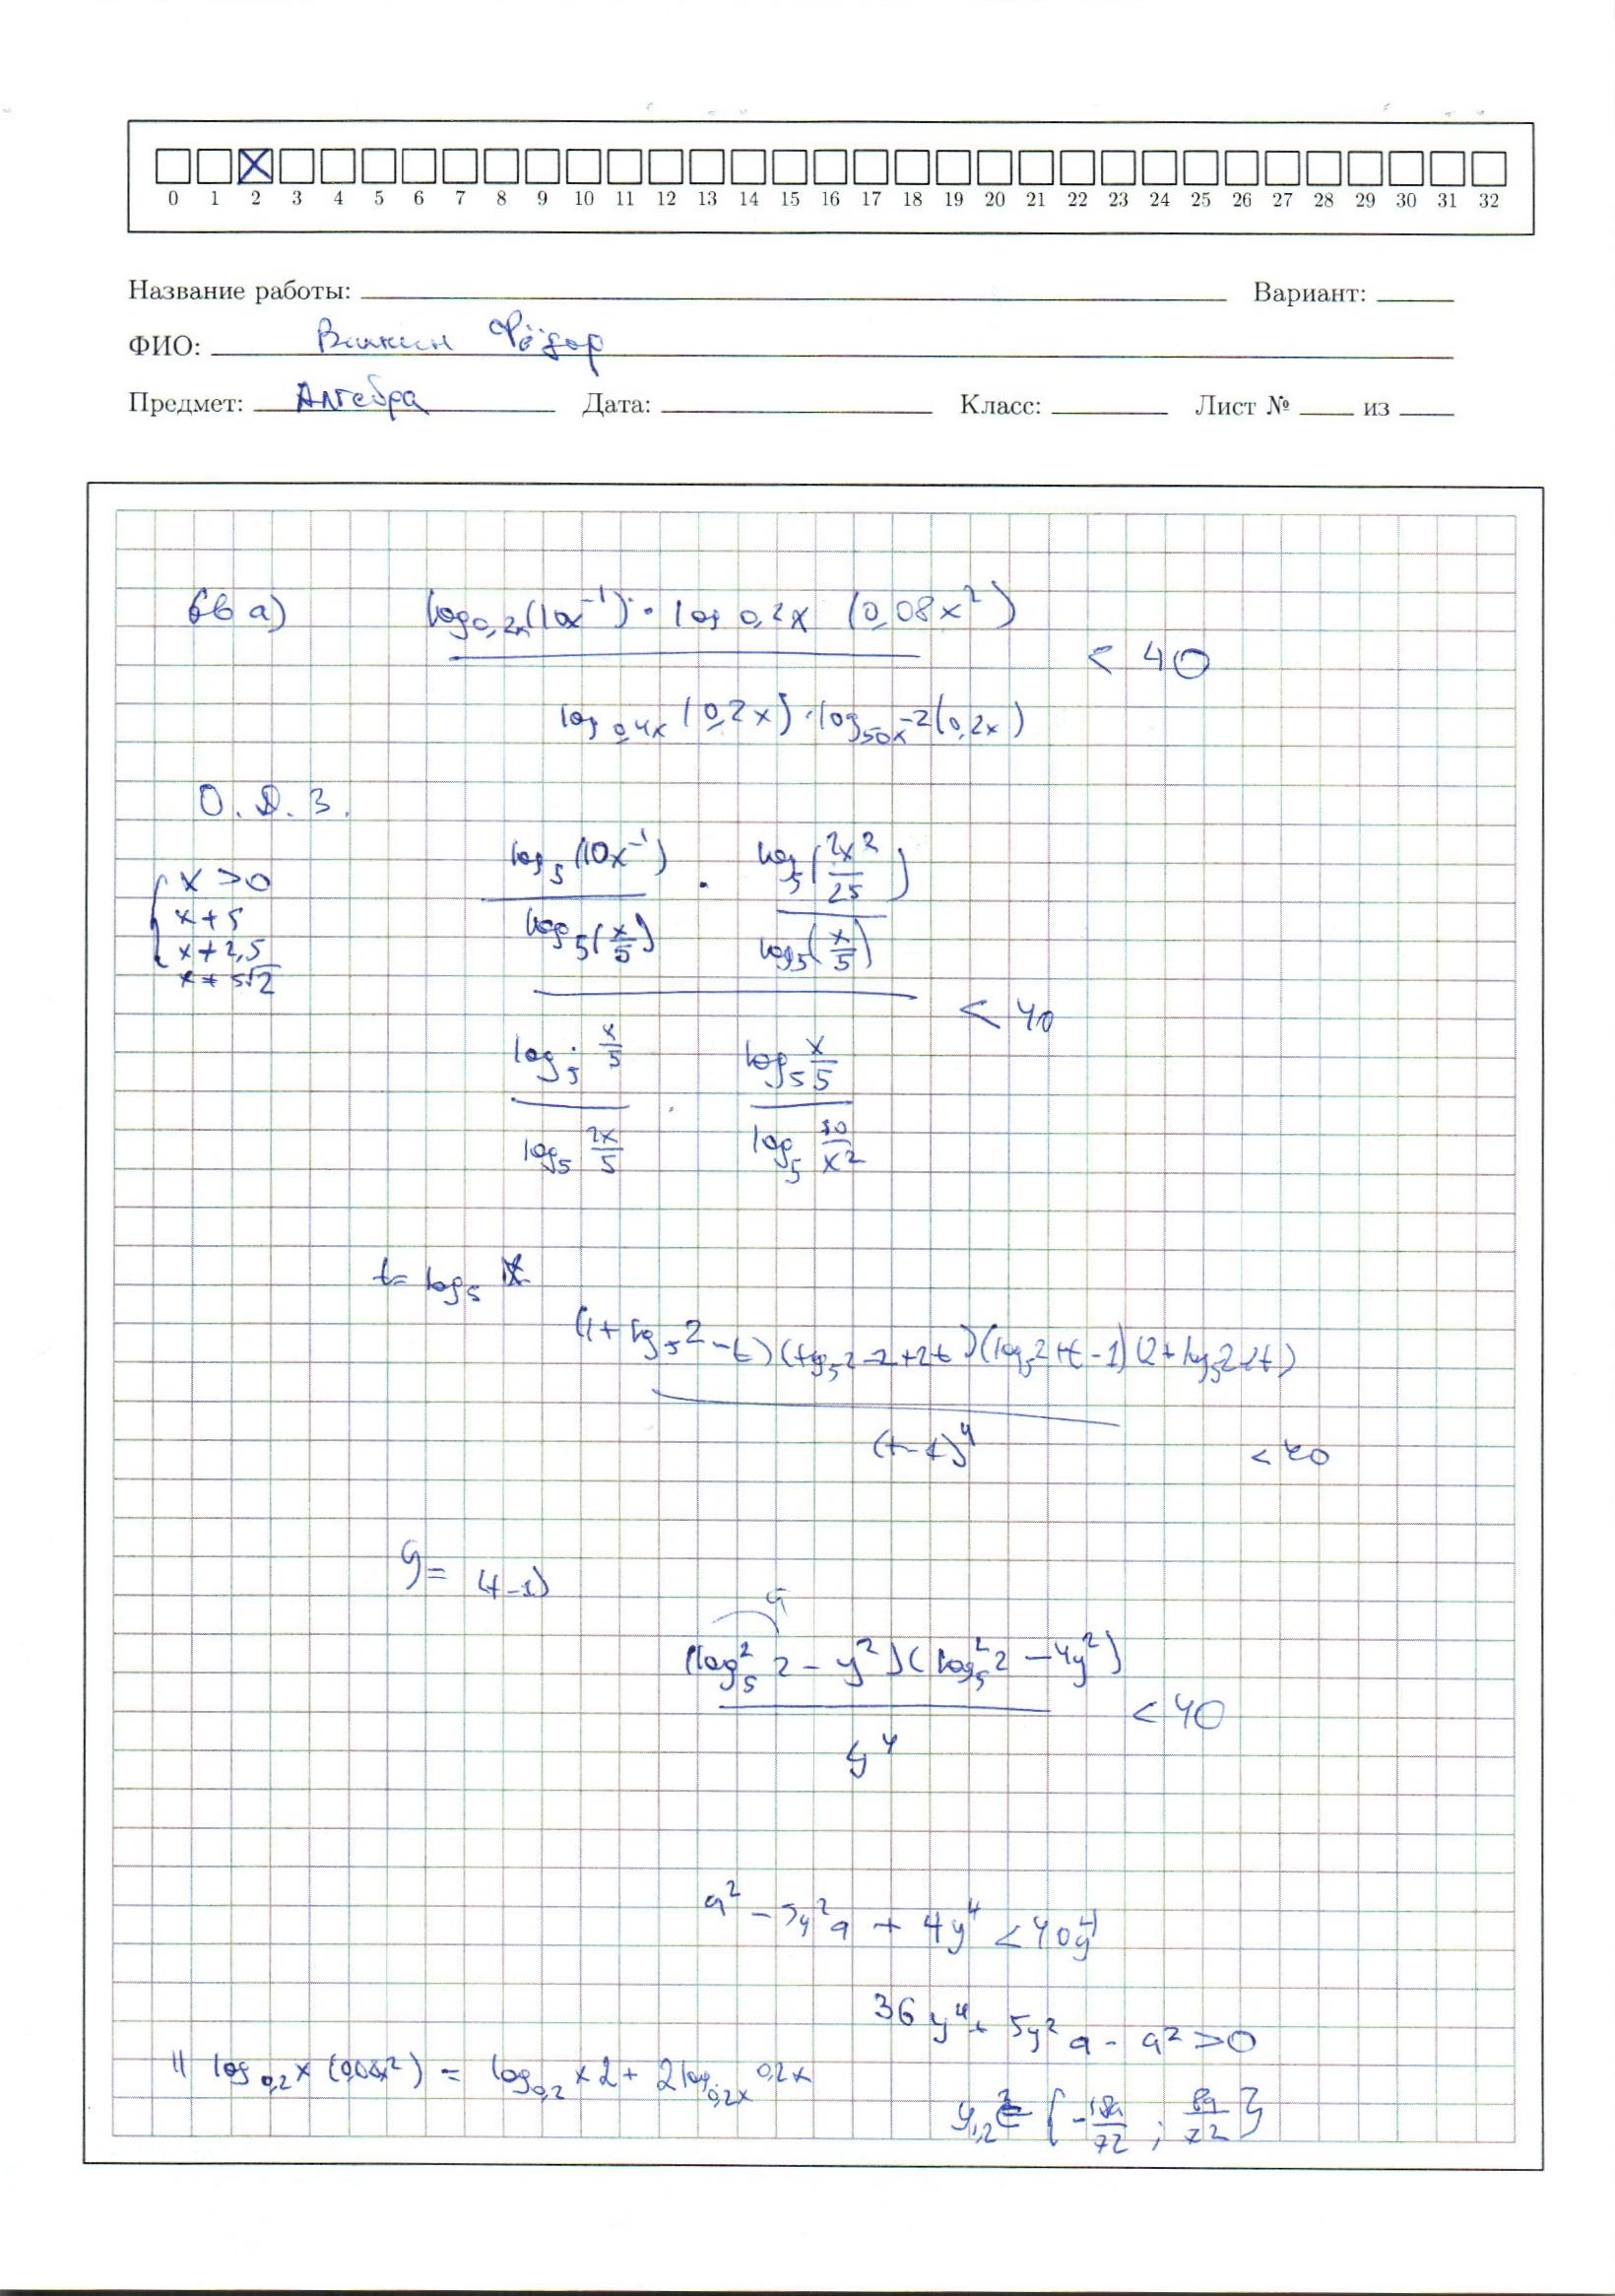 0 1 2 3 4 5 6 7 8 9 10 11 12 13 14 15 16 17 18 19 20 21 22 23 24 25 26 27 28 29 30 31 32
Название работы: Вариант:
ФИО: Фёдор
Предмет: Алгебра Дата: Класс: Лист № из
а) log_{0,2x}(10x^{-1}) · log_{0,2x} (0,08x^2)
< 40
log_{0,4x} (0,2x) · log_{50x^{-2}}(0,2x)
О.Д.З.
log_5(10x^{-1}) · log_5(2x^2/25)
x > 0
x ≠ 5
log_5(x/5) log_5(x/5)
x ≠ 2,5
x ≠ 5√2
< 40
log_5 x/5 · log_5 x/5
log_5 2x/5 log_5 50/x^2
t = log_5 x
(1 + log_5 2 - t)(log_5 2 - 2 + 2t)(log_5 2 + t - 1)(2 + log_5 2 - 2t)
(t - 1)^4 < 40
y = (t - 1)
a
(log_5^2 2 - y^2)(log_5^2 2 - 4y^2)
< 40
y^4
a^2 - 5y^2a + 4y^4 < 40y^4
36y^4 + 5y^2a - a^2 > 0
11 log_{0,2x} (0,08x^2) = log_{0,2x} 2 + 2log_{0,2x} 0,2x
y_{1,2}^2 = {-18a/72 ; 8a/72}